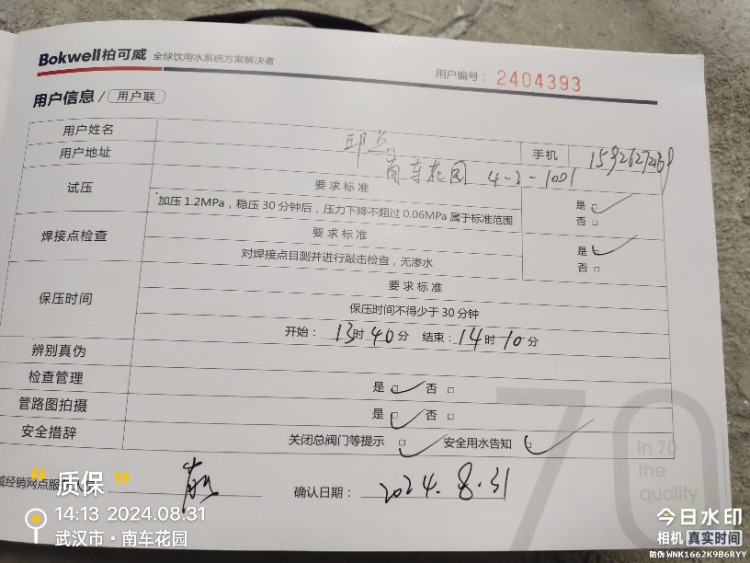 Bokwell柏可威 全球饮用水系统方案解决者
用户编号： 2404393
用户信息 / 用户联
用户姓名 邱 手机
用户地址 南车花园 4-2-1001
试压 要求标准 是
加压 1.2MPa，稳压 30 分钟后，压力下降不超过 0.06MPa 属于标准范围 否
焊接点检查 要求标准 是
对焊接点目测并进行敲击检查，无渗水 否
保压时间 要求标准
保压时间不得少于 30 分钟
开始： 13时 40分 结束： 14时 10分
辨别真伪
检查管理 是 否
管路图拍摄 是 否
安全措辞 关闭总阀门等提示 安全用水告知
70
in 70
the
quality
威经销网点服
确认日期： 2024.8.31
“质保”
14:13 2024.08.31
武汉市·南车花园
今日水印
相机 真实时间
防伪 WNK1662K9B6RYY